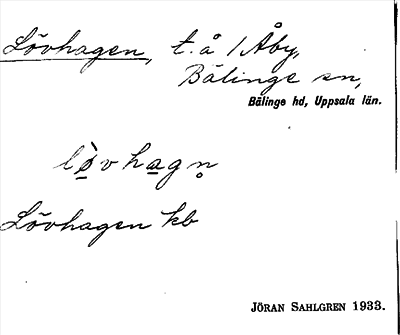 Lövhagen, t. å 1 Åby,
Bälinge sn,
Bälinge hd, Uppsala län.
lø̱̀vha̱gn̥
Lövhagen kb
JÖRAN SAHLGREN 1933.